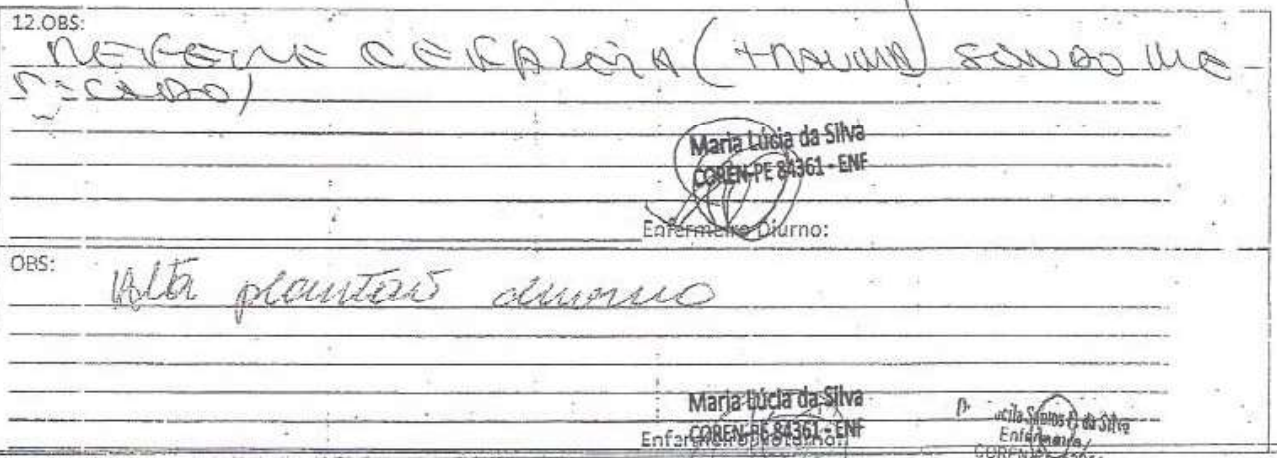 12.OBS:
REFERE CEFALEIA (TRAUMA) SENDO ME-
DICADO)
Maria Lúcia da Silva
COREN-PE 84361 - ENF
Enfermeiro Diurno:
OBS:
Alta plantão diurno
Maria Lúcia da Silva
COREN-PE 84361 - ENF
Santos da Silva